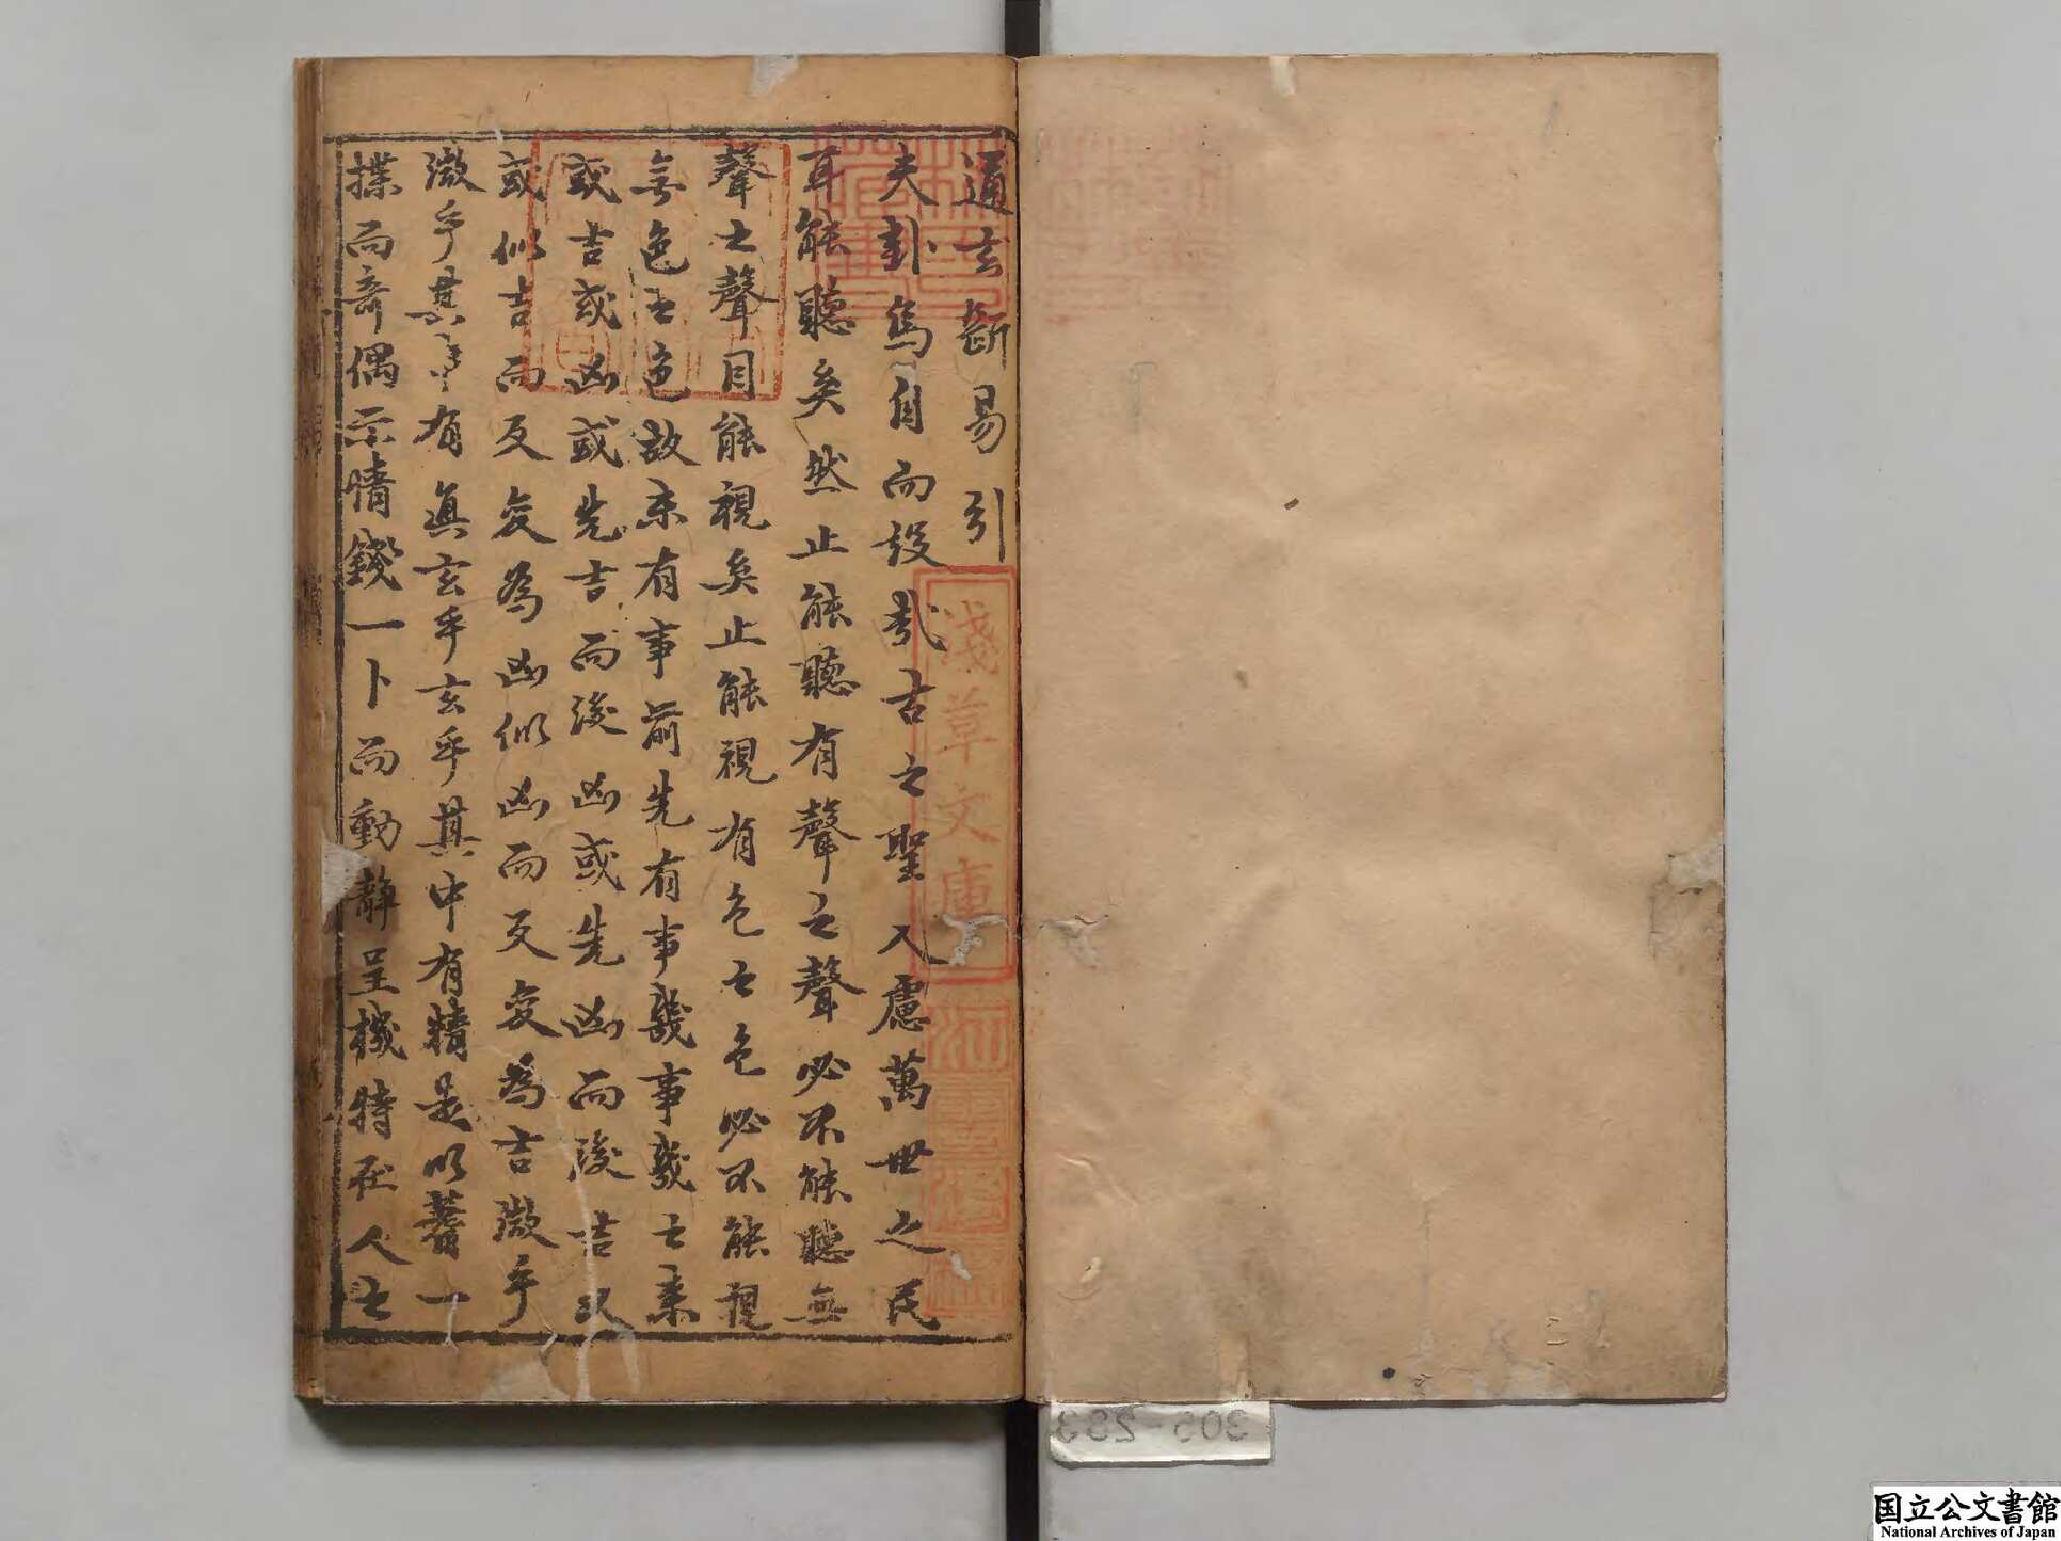 通玄斷易引
夫卦焉自而設哉古之聖人慮萬世之民
耳能聽矣然止能聽有聲之聲必不能聽無
聲之聲目能視矣止能視有色之色必不能視
無色之色故未有事前先有事幾事幾之來
或吉或凶或先吉而後凶或先凶而後吉又
或似吉而反變為凶似凶而反變為吉微乎
微乎其中有真玄乎玄乎其中有精是以蓍一
揲而奇偶示情錢一卜而動靜呈機特在人之
淺草文庫
305-293
国立公文書館
National Archives of Japan